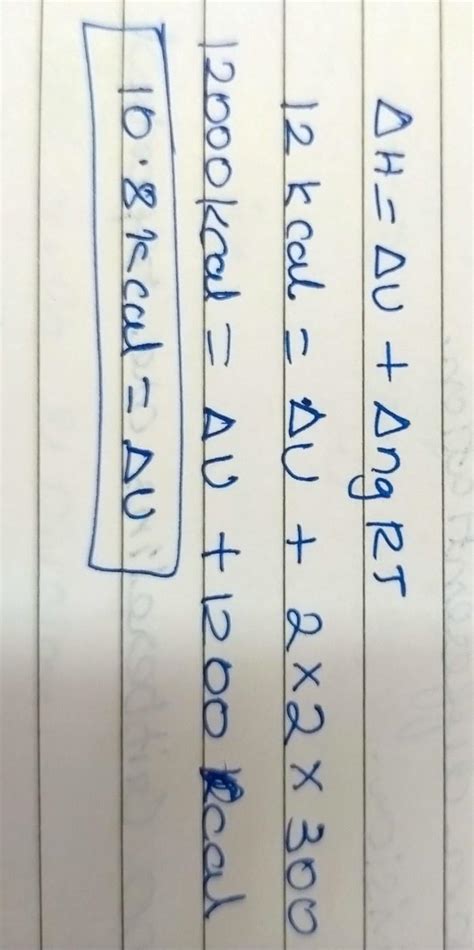 ΔH = ΔU + Δng RT
12 kcal = ΔU + 2 x 2 x 300
12000 kcal = ΔU + 1200 kcal
10.8 kcal = ΔU